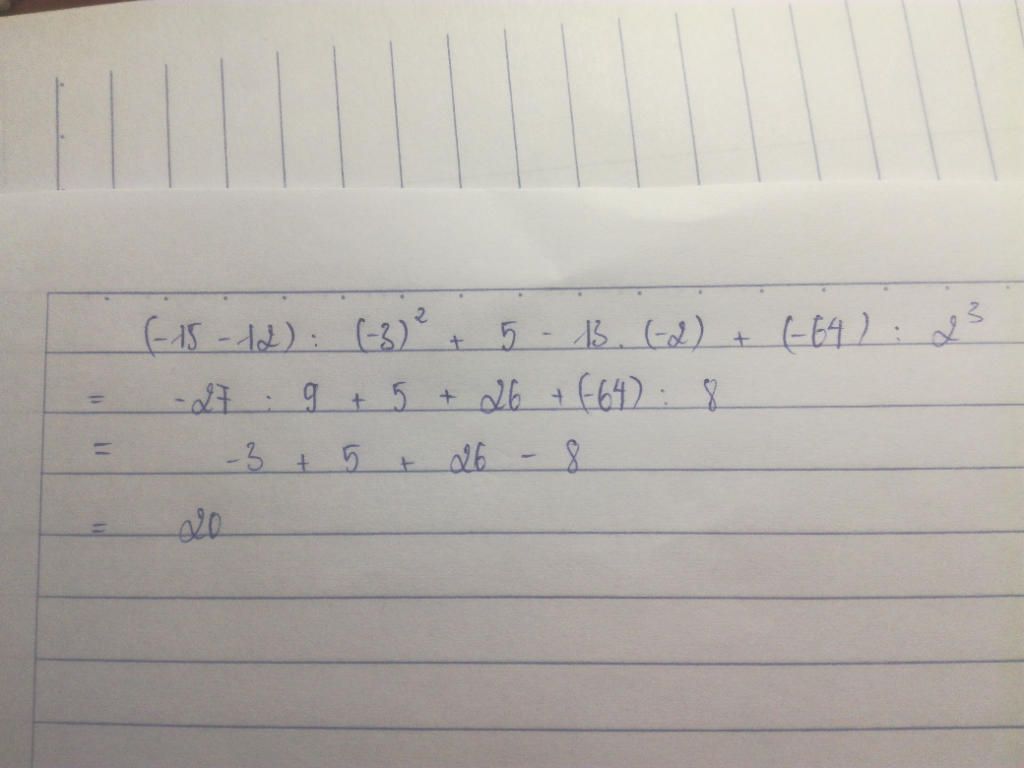 (-15 - 12) : (-3)² + 5 - 13 . (-2) + (-64) : 2³
= -27 : 9 + 5 + 26 + (-64) : 8
= -3 + 5 + 26 - 8
= 20